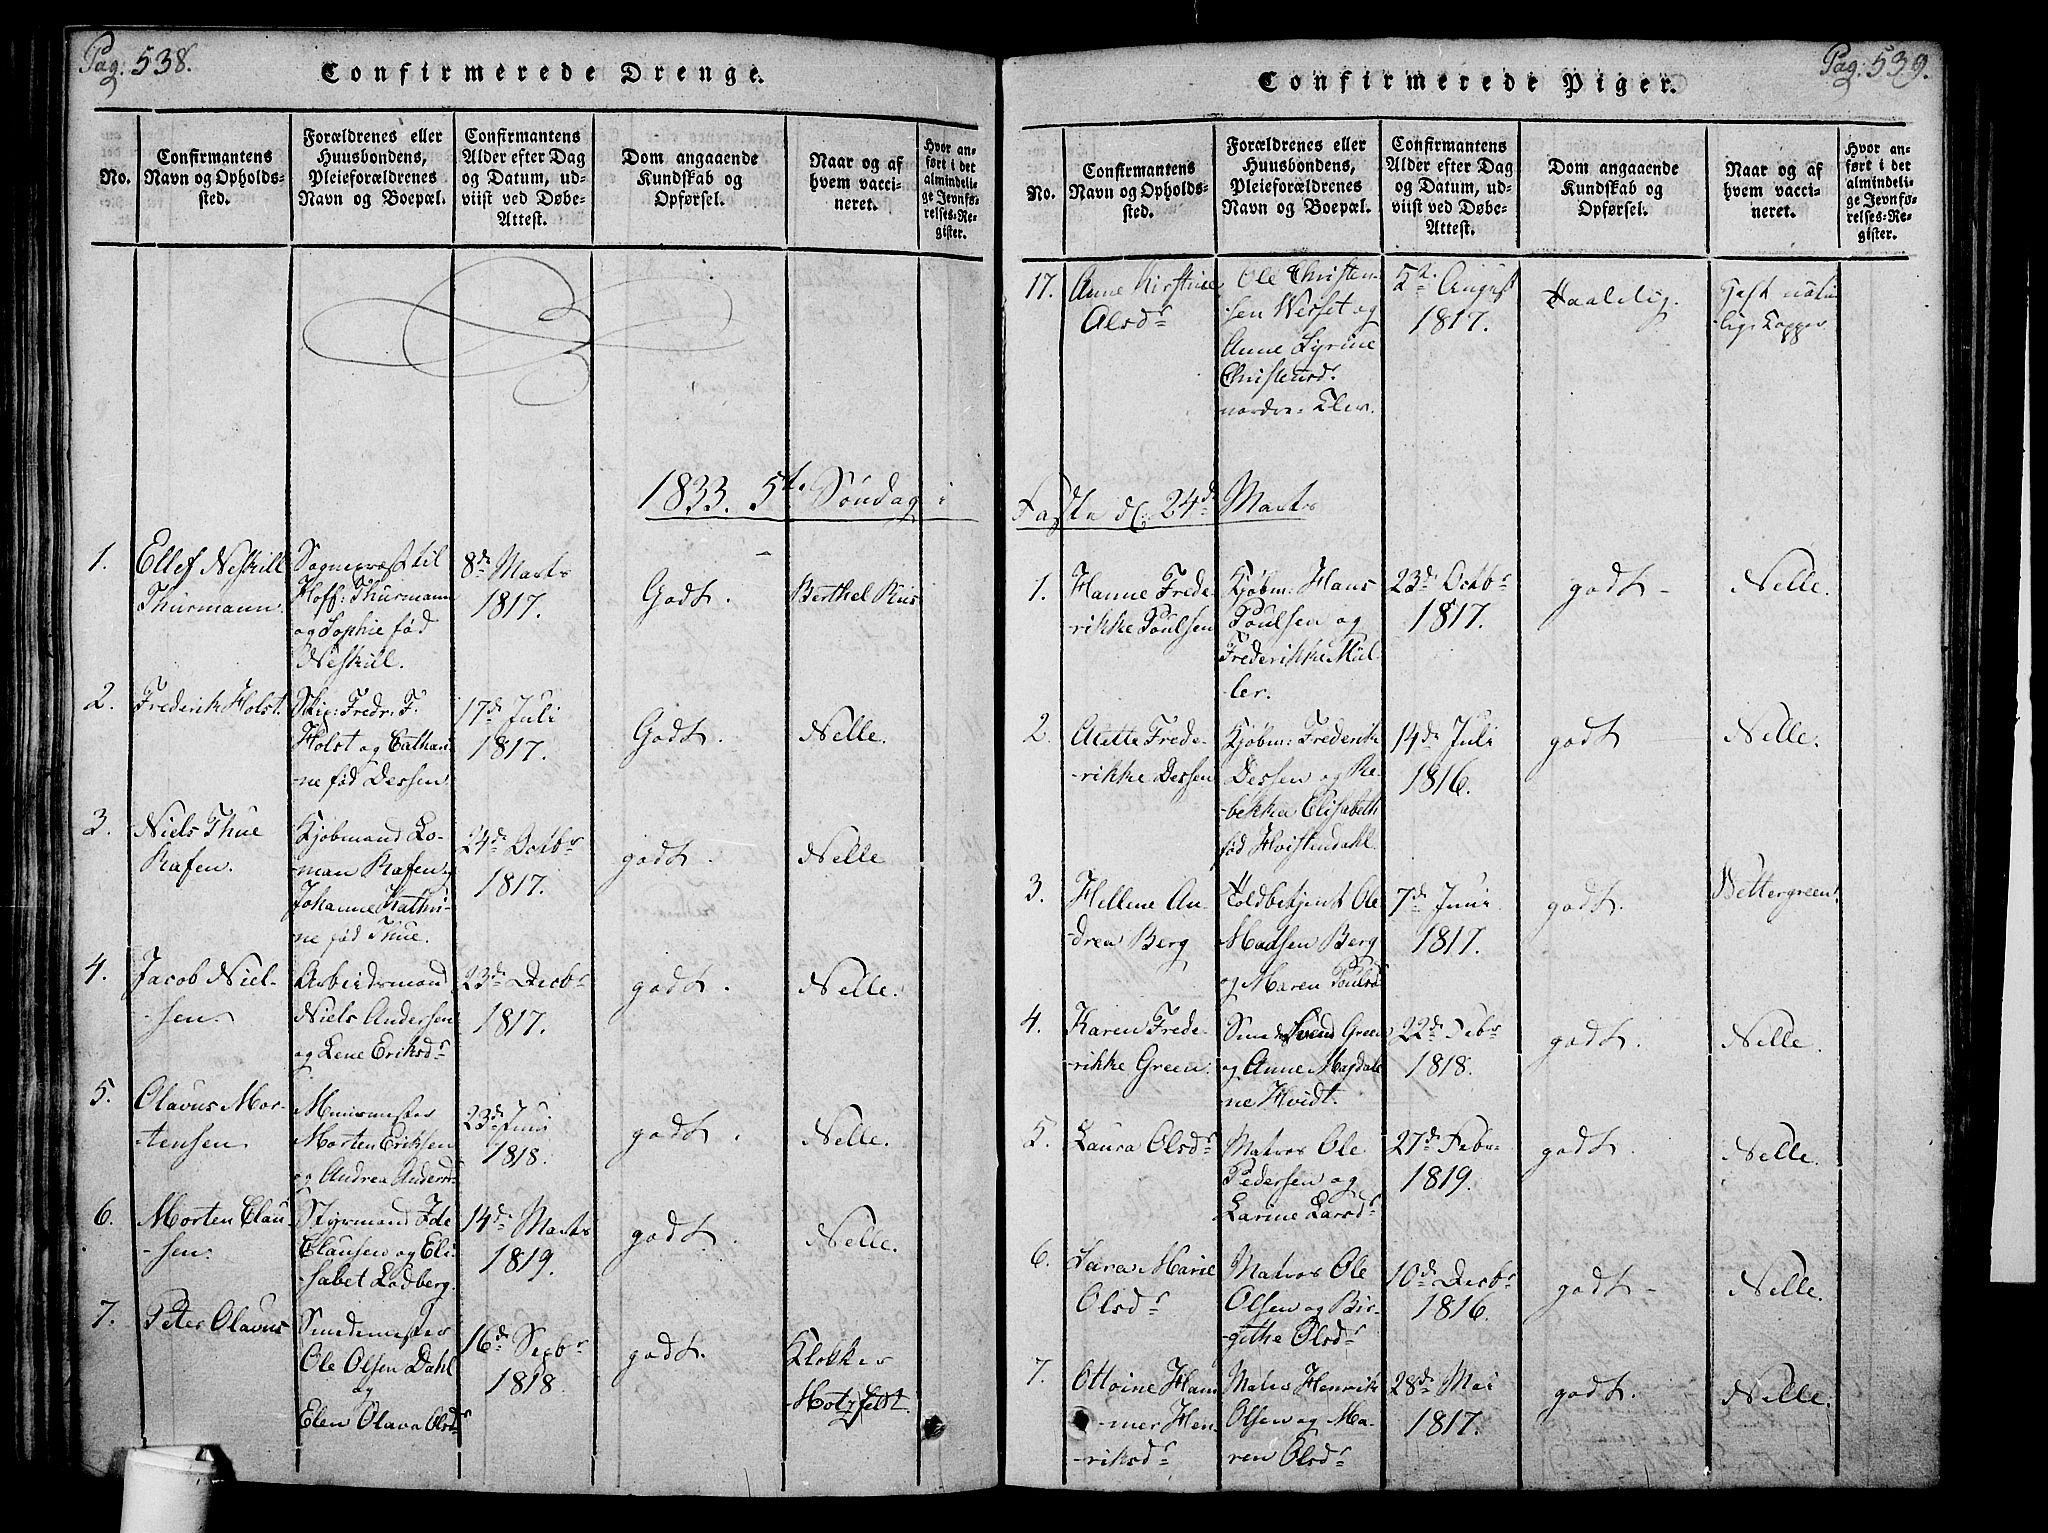 Pag. 538.
Confirmerede Drenge.
No.
Confirmantens
Navn og Opholds-
sted.
Forældrenes eller
Huusbondens,
Pleieforældrenes
Navn og Boepæl.
Confirmantens
Alder efter Dag
og Datum, ud-
viist ved Døbe-
Attest.
Dom angaaende
Kundskab og
Opførsel.
Naar og af
hvem vacci-
neret.
Hvor an-
ført i det
almindeli-
ge Jevnfø-
relses-Re-
gister.
1833. 5t. Søndag i
1.
Ellef Neskill
Thurmann.
Sognepræst til
Hoff: Thurmann
og Sophie fød
Neskill.
8de Marts
1817.
Godt.
Berthel Riis
2.
Frederik Holst.
Skip: Fredr: F.
Holst og Cathari-
-ne fød Dessen
17de Juli
1817.
Godt.
Nelle.
3.
Niels Thue
Rafen.
Kjøbmand Lo-
man Rafen og
Johanne Kathri-
ne fød Thue.
24de Octbr
1817.
godt.
Nelle
4.
Jacob Niel-
-sen.
Arbeidsmand
Niels Andersen
og Lene Eriksdr
23de Decbr
1817.
godt.
Nelle.
5.
Olavus Mor-
tensen
Muurmester
Morten Eriksen
og Andrea Anders
23de Juni
1818.
godt.
Nelle.
6.
Morten Clau-
-sen.
Styrmand Ide
Clausen og Eli-
-sabet Lodberg.
14de Marts
1819.
godt.
Nelle.
7.
Peter Olavus
Smedemester
Ole Olsen Dahl
og
Elen Olava Olsdr
16de Sepbr
1818
godt.
Klokker
Motzfeldt.
Pag. 539.
Confirmerede Piger.
No.
Confirmantens
Navn og Opholds-
sted.
Forældrenes eller
Huusbondens,
Pleieforældrenes
Navn og Boepæl.
Confirmantens
Alder efter Dag
og Datum, ud-
viist ved Døbe-
Attest.
Dom angaaende
Kundskab og
Opførsel.
Naar og af
hvem vacci-
neret.
Hvor an-
ført i det
almindeli-
ge Jevnfø-
relses-Re-
gister.
17.
Anne Kirstine
Olsdr
Ole Christen-
-sen Werset og
Anne Syrine
Christensdr.
nordre Klev.
5te August
1817.
Taalelig.
Haft natur
lige Kopper
Faste d. 24de Marts
1.
Hanne Frede-
rikke Poulsen
Kjøbm: Hans
Poulsen og
Frederikke Mül-
ler.
23de Octbr
1817.
godt
Nelle.
2.
Alette Frede-
-rikke Dessen
Kjøbm: Frederik
Dessen og Re-
-bekka Elisabeth
fød Hvistendahl.
14de Juli
1816.
godt
Nelle.
3.
Hellene An-
-drea Berg
Toldbetjent Ole
Madsen Berg
og Maren Poulsd
7de Juni
1817.
godt.
Wettergreen
4.
Karen Frede-
-rikke Green.
Smed Svend Green
og Anne Magdale
ne Hvidt.
22de Febr
1818.
godt.
Nelle.
5.
Laura Olsdr
Matros Ole
Pedersen og
Larine Larsdr
27de Febr
1819.
godt.
Nelle.
6.
Sara Marie
Olsdr
Matros Ole
Olsen og Bir-
-githe Olsdr
10de Decbr
1816.
godt
Nelle.
7.
Ottoine Ham
-mer Hen-
-riksdr
Matros Henrik
Olsen og Ma-
ren Olsdr
28de Mai
1817.
godt.
Nelle.